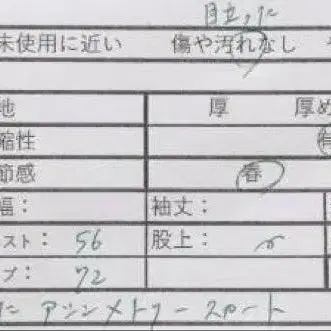 目立った
未使用に近い 傷や汚れなし
地 厚 厚め
縮性 有
節感 春
幅: 袖丈:
スト: 56 股上:
プ: 72
に アシンメトリースカート